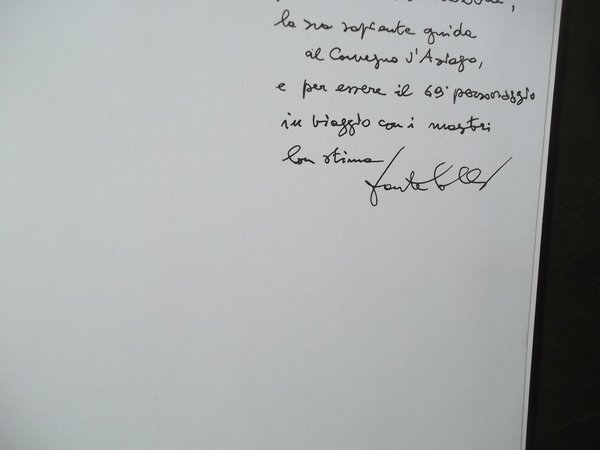 la sua sapiente guida
al Convegno d'Asiago,
e per essere il 69° personaggio
in viaggio con i mostri
Con stima